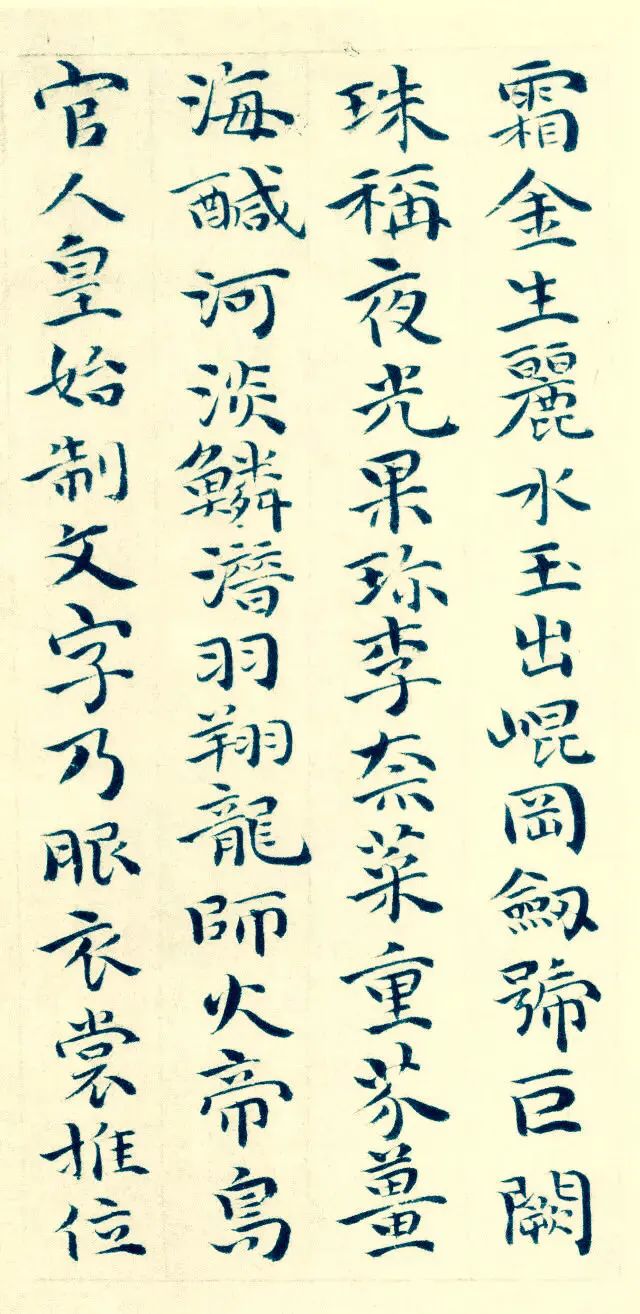 霜金生麗水玉出崐岡劔號巨闕
珠稱夜光果珎李奈菜重芥薑
海醎河淡鱗潛羽翔龍師火帝鳥
官人皇始制文字乃服衣裳推位